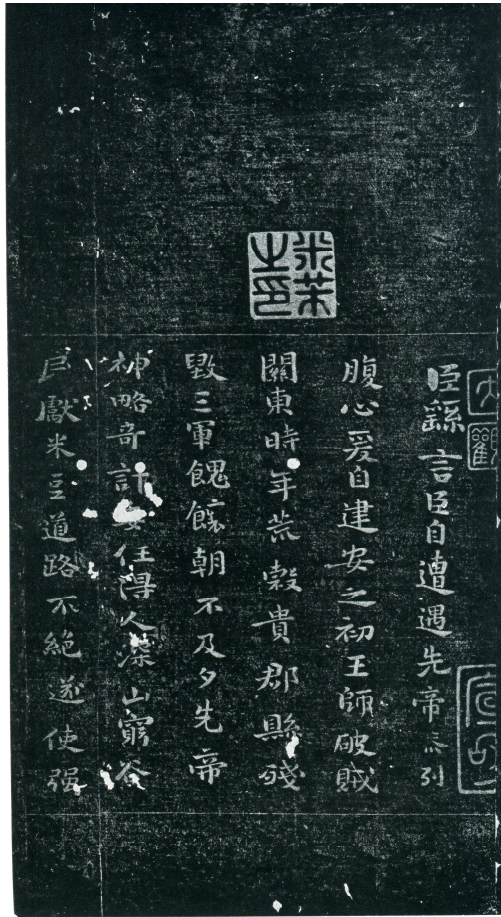 大觀
米芾之印
臣繇言臣自遭遇先帝忝列
腹心爰自建安之初王師破賊
關東時年荒穀貴郡縣殘
毀三軍餽饟朝不及夕先帝
神略奇計委任得人深山窮谷
民獻米豆道路不絕遂使强